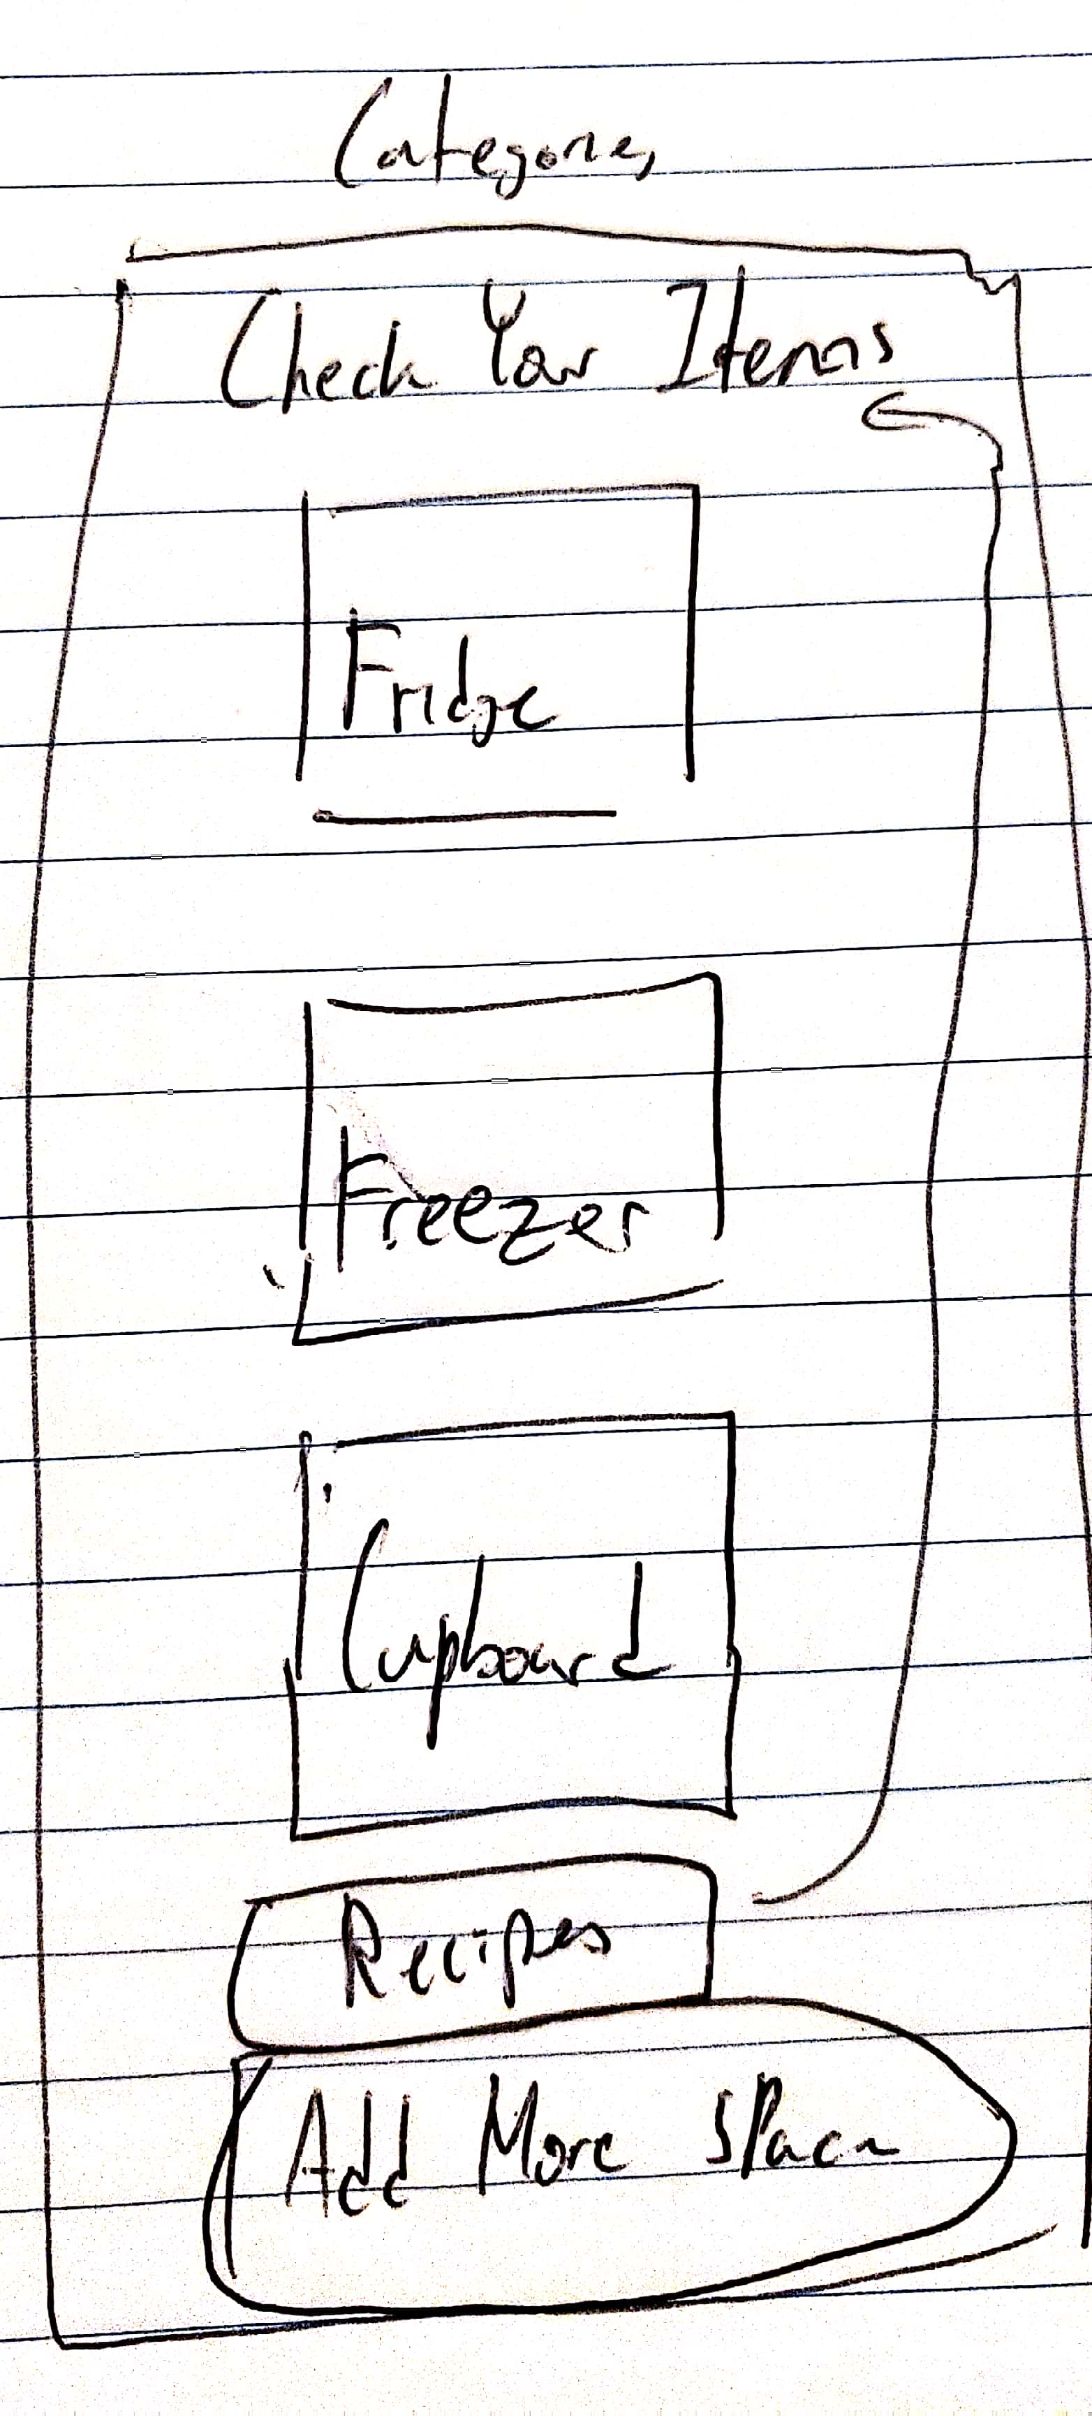 Categories
Check Your Items
Fridge
Freezer
Cupboard
Recipes
Add More Space